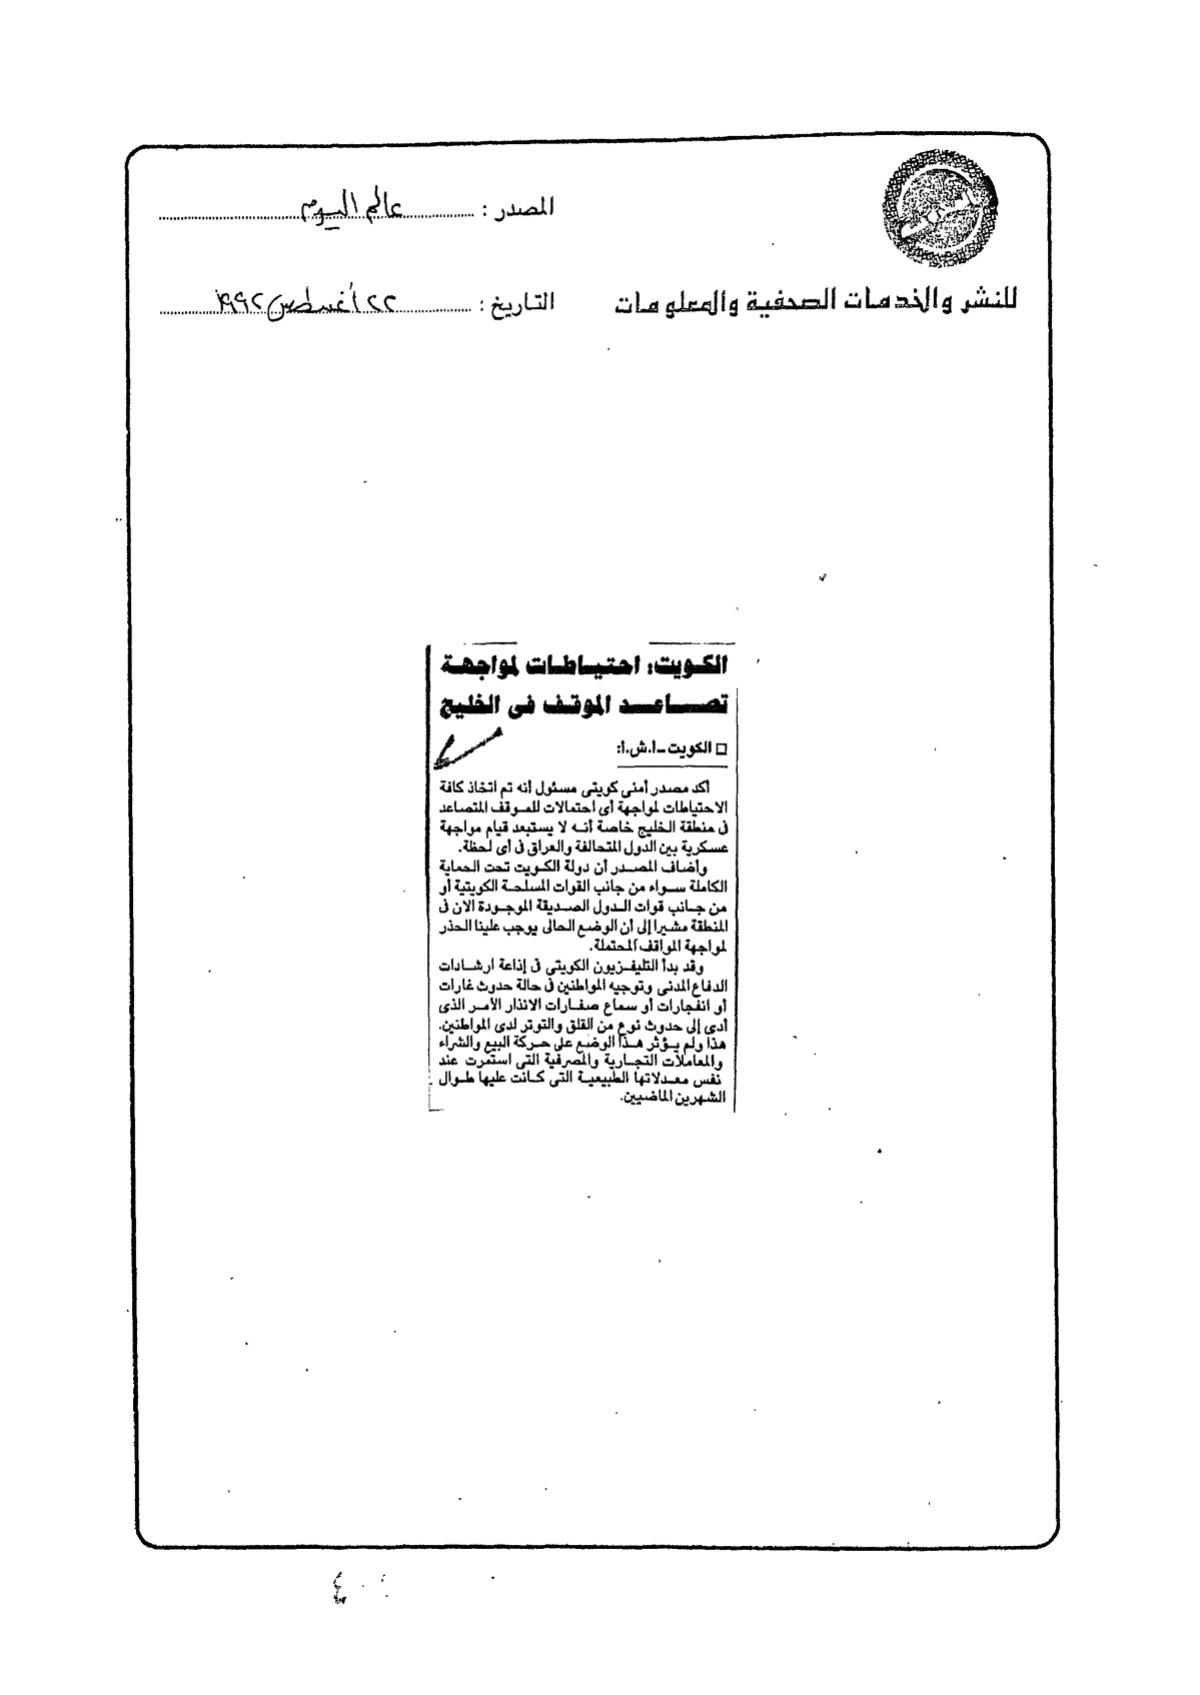 المصدر : عالم اليوم
للنشر والخدمات الصحفية والمعلومات
التاريخ : ٢٢ أغسطس ١٩٩٢
الكويت: احتياطات لمواجهة
تصاعد الموقف فى الخليج
□ الكويت ـ أ.ش.أ:
أكد مصدر أمنى كويتى مسئول أنه تم اتخاذ كافة
الاحتياطات لمواجهة أى احتمالات للموقف المتصاعد
فى منطقة الخليج خاصة أنه لا يستبعد قيام مواجهة
عسكرية بين الدول المتحالفة والعراق فى أى لحظة.
وأضاف المصدر أن دولة الكويت تحت الحماية
الكاملة سواء من جانب القوات المسلحة الكويتية أو
من جانب قوات الدول الصديقة الموجودة الآن فى
المنطقة مشيرا إلى أن الوضع الحالى يوجب علينا الحذر
لمواجهة المواقف المحتملة.
وقد بدأ التليفزيون الكويتى فى إذاعة ارشادات
الدفاع المدنى وتوجيه المواطنين فى حالة حدوث غارات
أو انفجارات أو سماع صفارات الانذار الأمر الذى
أدى إلى حدوث نوع من القلق والتوتر لدى المواطنين.
هذا ولم يؤثر هذا الوضع على حركة البيع والشراء
والمعاملات التجارية والمصرفية التى استمرت عند
نفس معدلاتها الطبيعية التى كانت عليها طوال
الشهرين الماضيين.